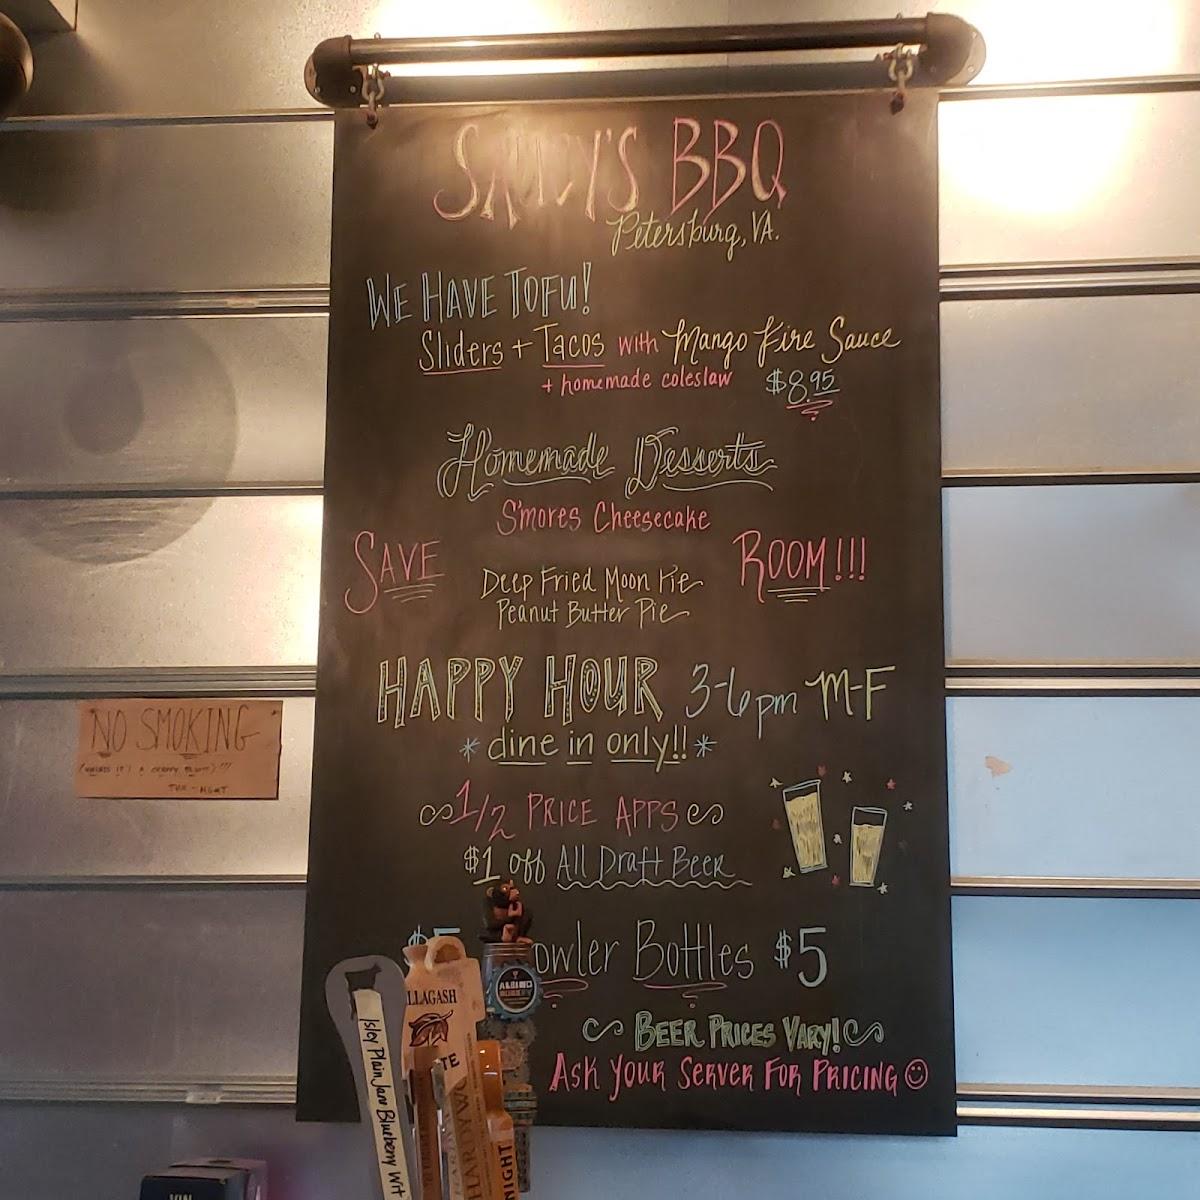 SAUCY'S BBQ
Petersburg, VA.
WE HAVE TOFU!
Sliders + Tacos with Mango Fire Sauce
+ homemade coleslaw $8.95
Homemade Desserts
S'mores Cheesecake
SAVE ROOM!!!
Deep Fried Moon Pie
Peanut Butter Pie
HAPPY HOUR 3-6pm M-F
* dine in only!! *
1/2 PRICE APPS
$1 off All Draft Beer
$5 owler Bottles $5
BEER PRICES VARY!
ASK YOUR SERVER FOR PRICING
NO SMOKING
THX - MGMT
Isley Plain Jane Blueberry Wit
LLAGASH
TE
ALBINO
HARDYW
NIGHT
VIN